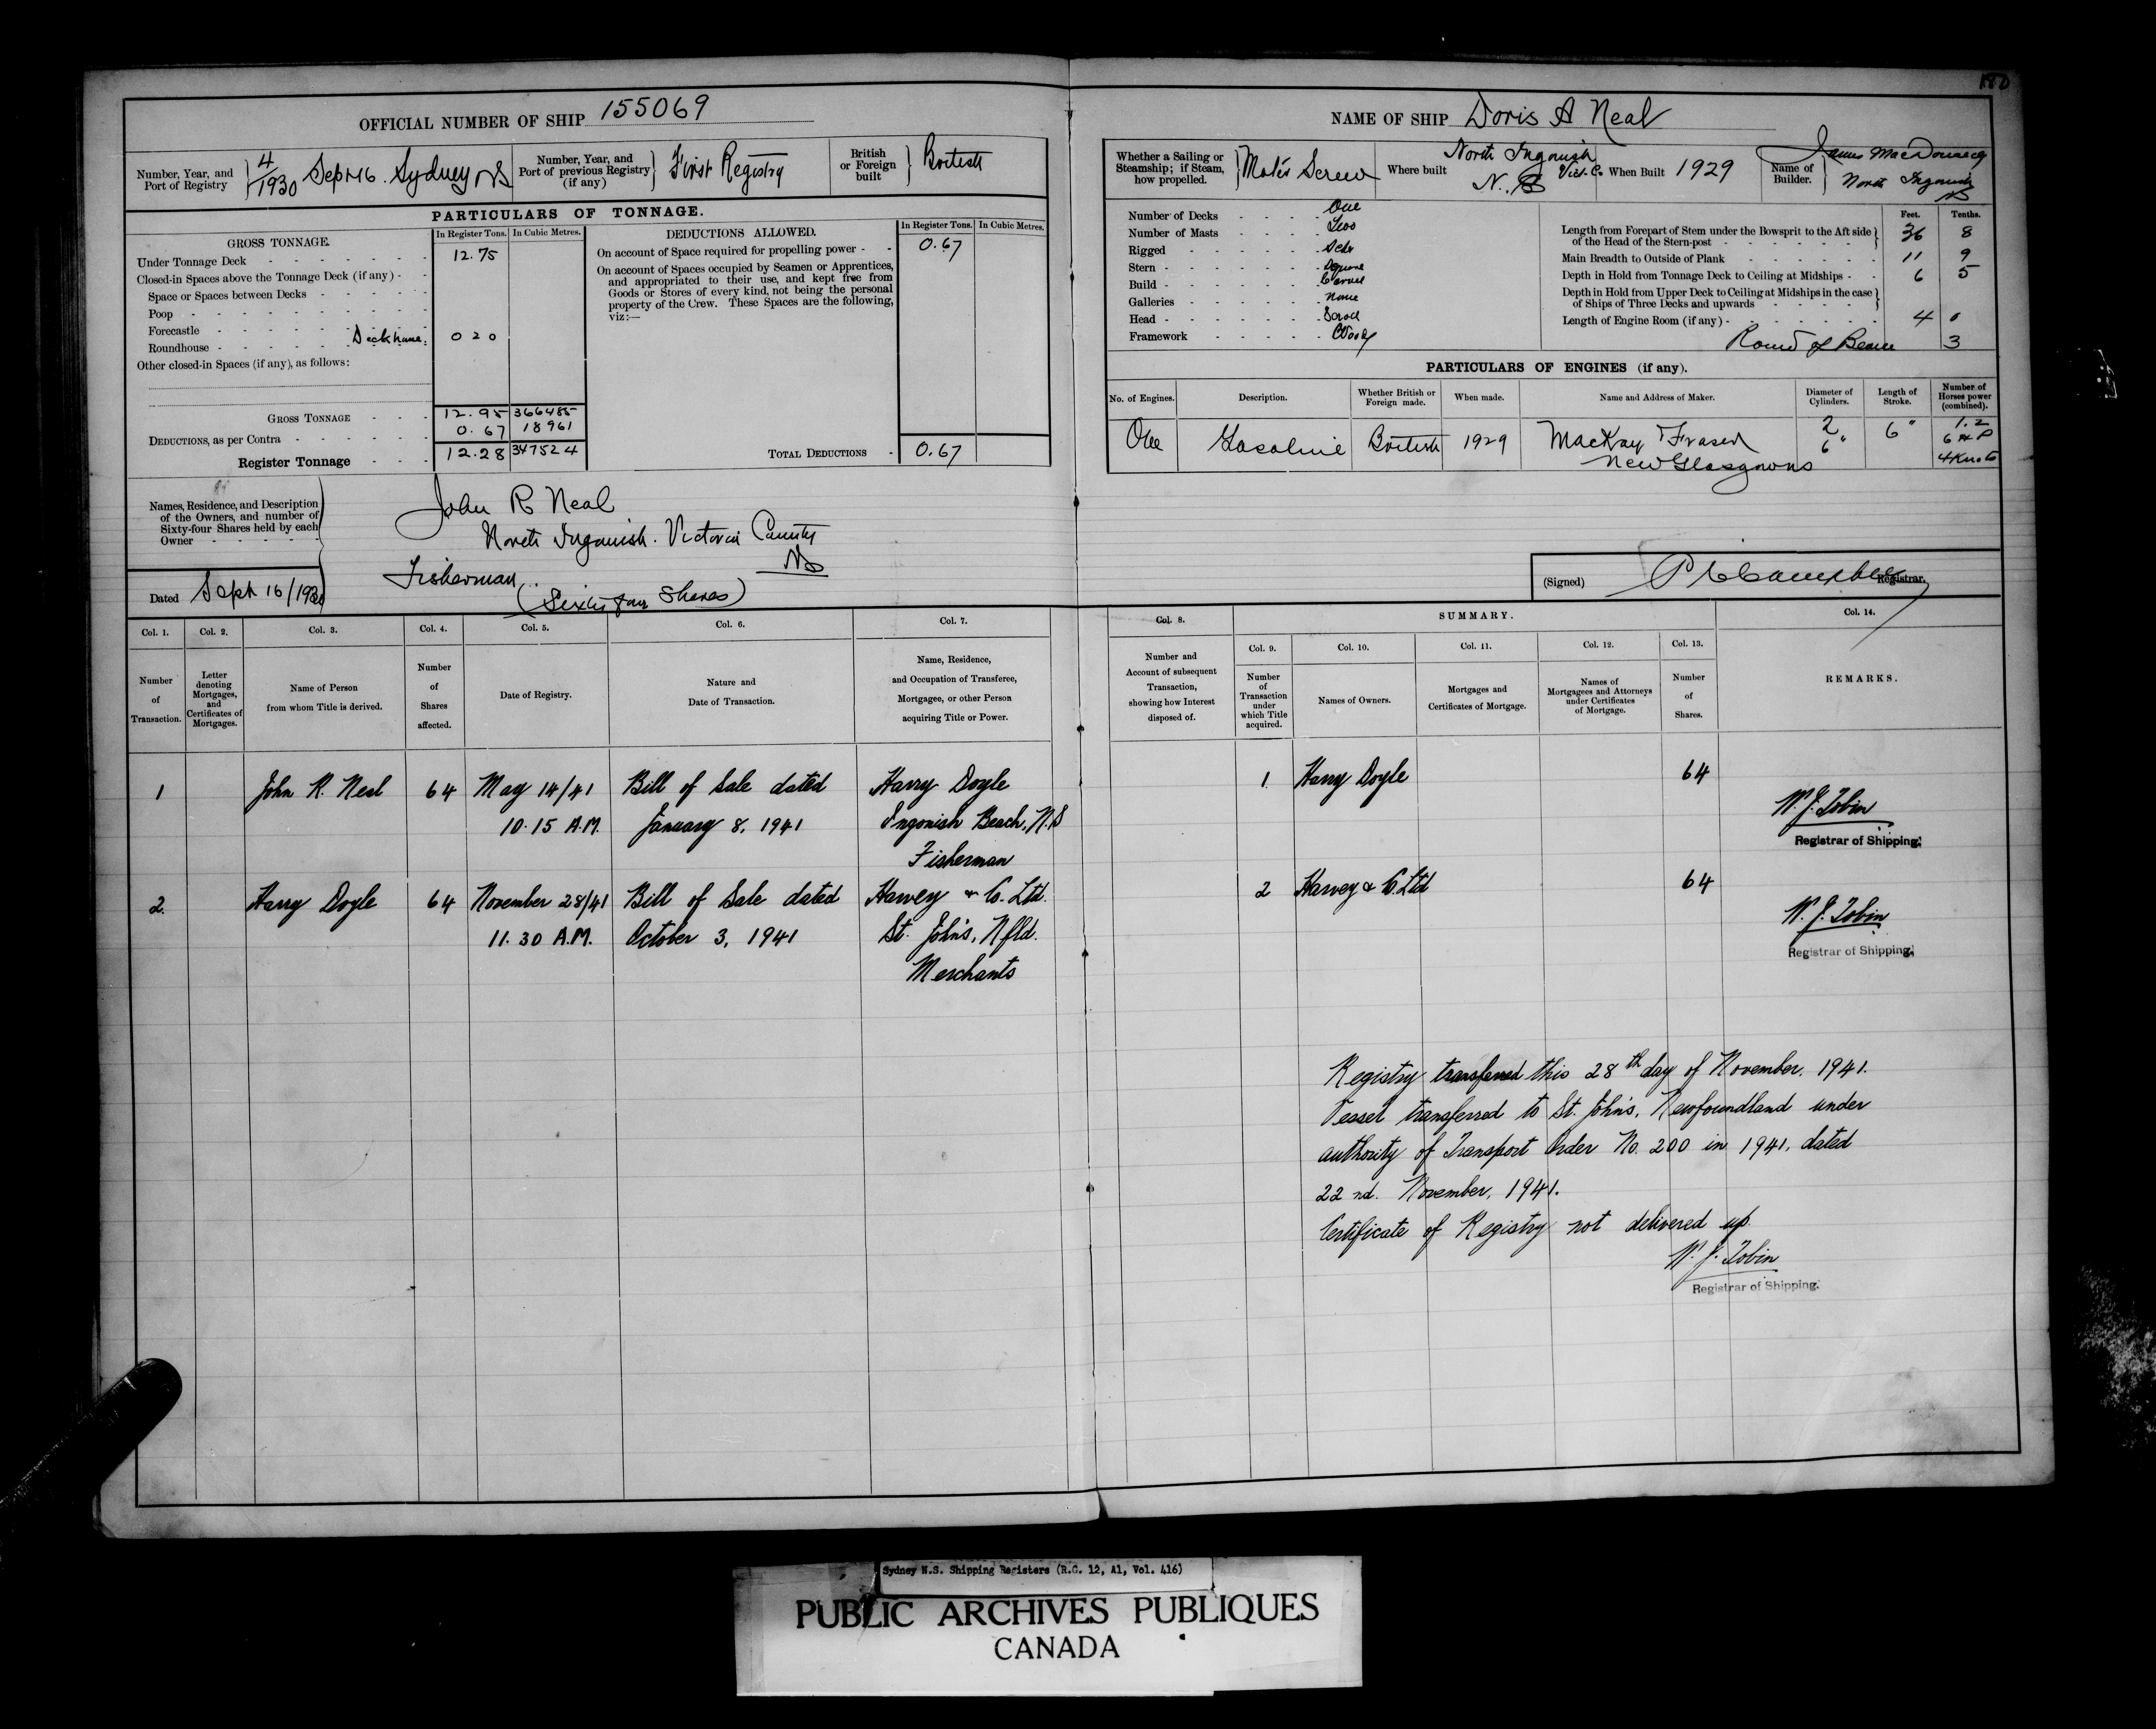 180
OFFICIAL NUMBER OF SHIP 155069
Number, Year, and Port of Registry } 4/1930 Sept 16. Sydney NS
Number, Year, and Port of previous Registry (if any) } First Registry
British or Foreign built } British
PARTICULARS OF TONNAGE.
GROSS TONNAGE. In Register Tons. In Cubic Metres.
Under Tonnage Deck 12.75
Closed-in Spaces above the Tonnage Deck (if any)
Space or Spaces between Decks
Poop
Forecastle
Roundhouse Deckhouse: 0 20
Other closed-in Spaces (if any), as follows:
GROSS TONNAGE 12.95 366485
DEDUCTIONS, as per Contra 0.67 18961
Register Tonnage 12.28 347524
DEDUCTIONS ALLOWED. In Register Tons. In Cubic Metres.
On account of Space required for propelling power 0.67
On account of Spaces occupied by Seamen or Apprentices,
and appropriated to their use, and kept free from
Goods or Stores of every kind, not being the personal
property of the Crew. These Spaces are the following,
viz:—
TOTAL DEDUCTIONS 0.67
Names, Residence, and Description
of the Owners, and number of
Sixty-four Shares held by each
Owner
John R Neal
North Ingonish. Victoria County
NS
Fisherman
(Sixty four Shares)
Dated Sept 16/1930
NAME OF SHIP Doris A Neal
Whether a Sailing or Steamship; if Steam, how propelled. } Motor Screw
Where built North Ingonish Vict. Co N.S
When Built 1929
Name of Builder. { James MacDonald North Ingonish NS
Number of Decks One
Number of Masts Two
Rigged Schr
Stern Square
Build Carvel
Galleries None
Head Scroll
Framework Wood
Feet. Tenths.
Length from Forepart of Stem under the Bowsprit to the Aft side
of the Head of the Stern-post } 36 8
Main Breadth to Outside of Plank 11 9
Depth in Hold from Tonnage Deck to Ceiling at Midships 6 5
Depth in Hold from Upper Deck to Ceiling at Midships in the case
of Ships of Three Decks and upwards }
Length of Engine Room (if any) 4 0
Round of Beam 3
PARTICULARS OF ENGINES (if any).
No. of Engines. Description. Whether British or Foreign made. When made. Name and Address of Maker. Diameter of Cylinders. Length of Stroke. Number of Horses power (combined).
One Gasoline British 1929 MacKay Fraser New Glasgow NS 2 6" 6" 1.2 6 HP 4 Knots
(Signed) Registrar.
SUMMARY.
Col. 1. Col. 2. Col. 3. Col. 4. Col. 5. Col. 6. Col. 7. Col. 8. Col. 9. Col. 10. Col. 11. Col. 12. Col. 13. Col. 14.
Number of Transaction.
Letter denoting Mortgages, and Certificates of Mortgages.
Name of Person from whom Title is derived.
Number of Shares affected.
Date of Registry.
Nature and Date of Transaction.
Name, Residence, and Occupation of Transferee, Mortgagee, or other Person acquiring Title or Power.
Number and Account of subsequent Transaction, showing how Interest disposed of.
Number of Transaction under which Title acquired.
Names of Owners.
Mortgages and Certificates of Mortgage.
Names of Mortgagees and Attorneys under Certificates of Mortgage.
Number of Shares.
REMARKS.
1 John R. Neal 64 May 14/41 Bill of Sale dated Harry Doyle 1 Harry Doyle 64
10.15 A.M. January 8, 1941 Ingonish Beach, N.S W. J. Tobin
Fisherman Registrar of Shipping.
2. Harry Doyle 64 November 28/41 Bill of Sale dated Harvey & Co. Ltd. 2 Harvey & Co. Ltd 64
11.30 A.M. October 3, 1941 St. John's, Nfld. W. J. Tobin
Merchants Registrar of Shipping.
Registry transferred this 28th day of November, 1941.
Vessel transferred to St. John's, Newfoundland under
authority of Transport Order No. 200 in 1941, dated
22nd. November, 1941.
Certificate of Registry not delivered up.
W. J. Tobin
Registrar of Shipping.
Sydney N.S. Shipping Registers (R.G. 12, A1, Vol. 416)
PUBLIC ARCHIVES PUBLIQUES
CANADA